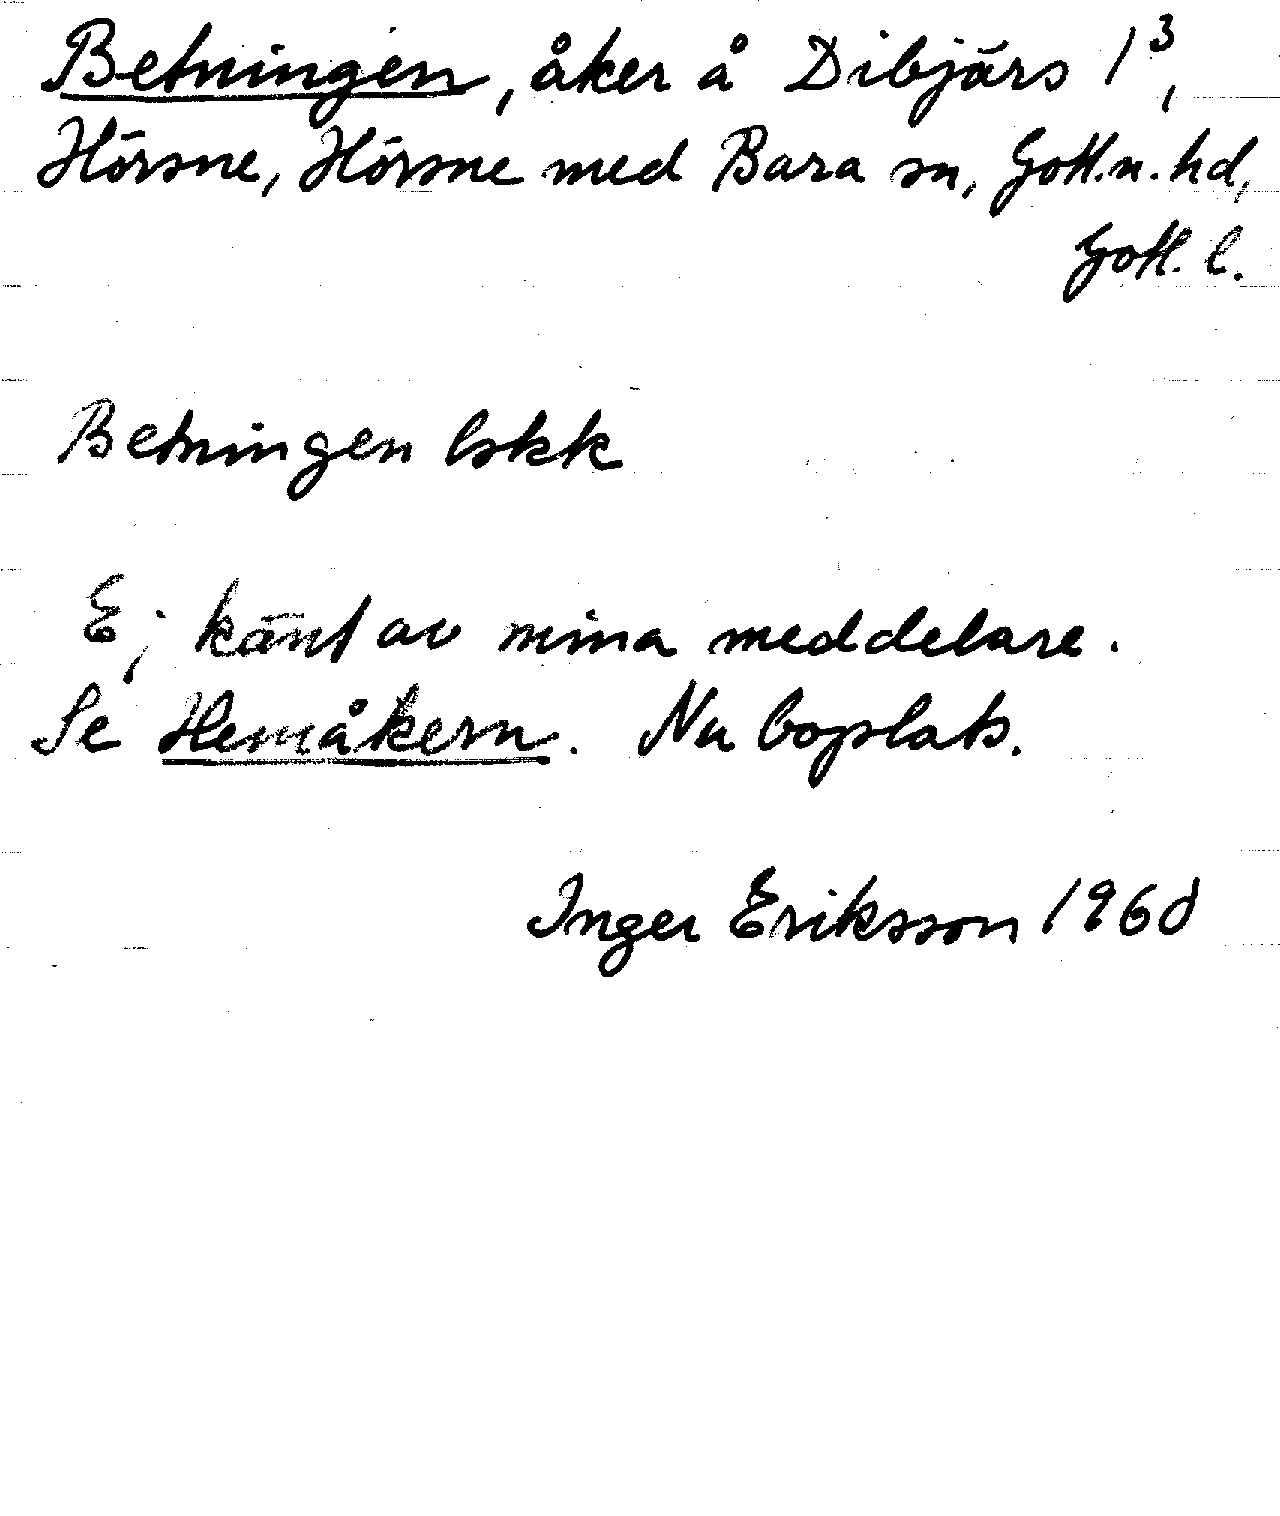 Betningen, åker å Dibjärs 1³,
Hörsne, Hörsne med Bara sn, Gotl.n.hd,
Gotl. l.
Betningen lskk
Ej känt av mina meddelare.
Se Hemåkern. Nu boplats.
Inger Eriksson 1960